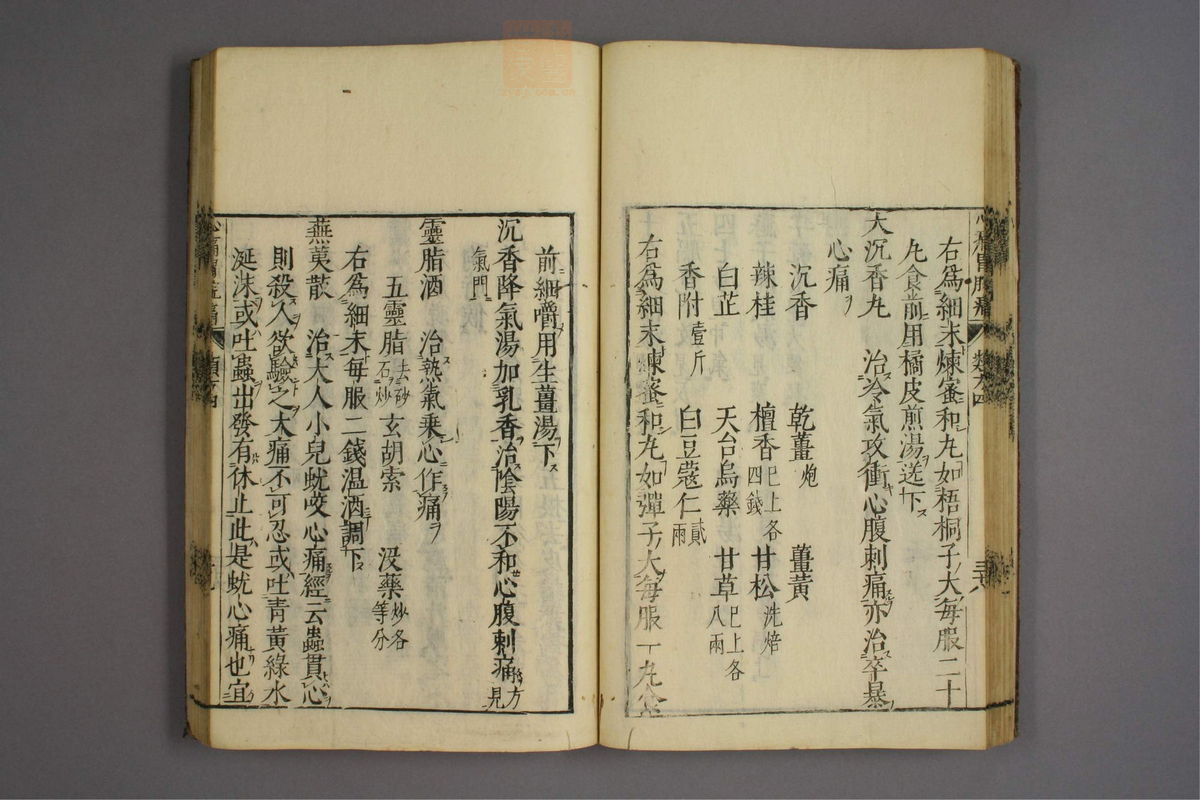 右為細末煉蜜和丸如梧桐子大每服二十
丸食前用橘皮煎湯送下
大沉香丸 治冷氣攻衝心腹刺痛亦治卒暴
心痛
沉香 乾薑炮 薑黃
辣桂 檀香巳上各四錢 甘松洗焙
白芷 天台烏藥 甘草巳上各八兩
香附壹斤 白豆蔻仁貳兩
右為細末煉蜜和丸如彈子大每服一丸食
前細嚼用生薑湯下
沉香降氣湯加乳香治陰陽不和心腹刺痛方見
氣門
靈脂酒 治熱氣乗心作痛
五靈脂去砂石炒 玄胡索 没藥炒各等分
右為細末每服二錢温酒調下
蕪荑散 治大人小兒蚘咬心痛經云蟲貫心
則殺人欲驗之大痛不可忍或吐青黃綠水
涎沫或吐蟲出發有休止此是蚘心痛也宜